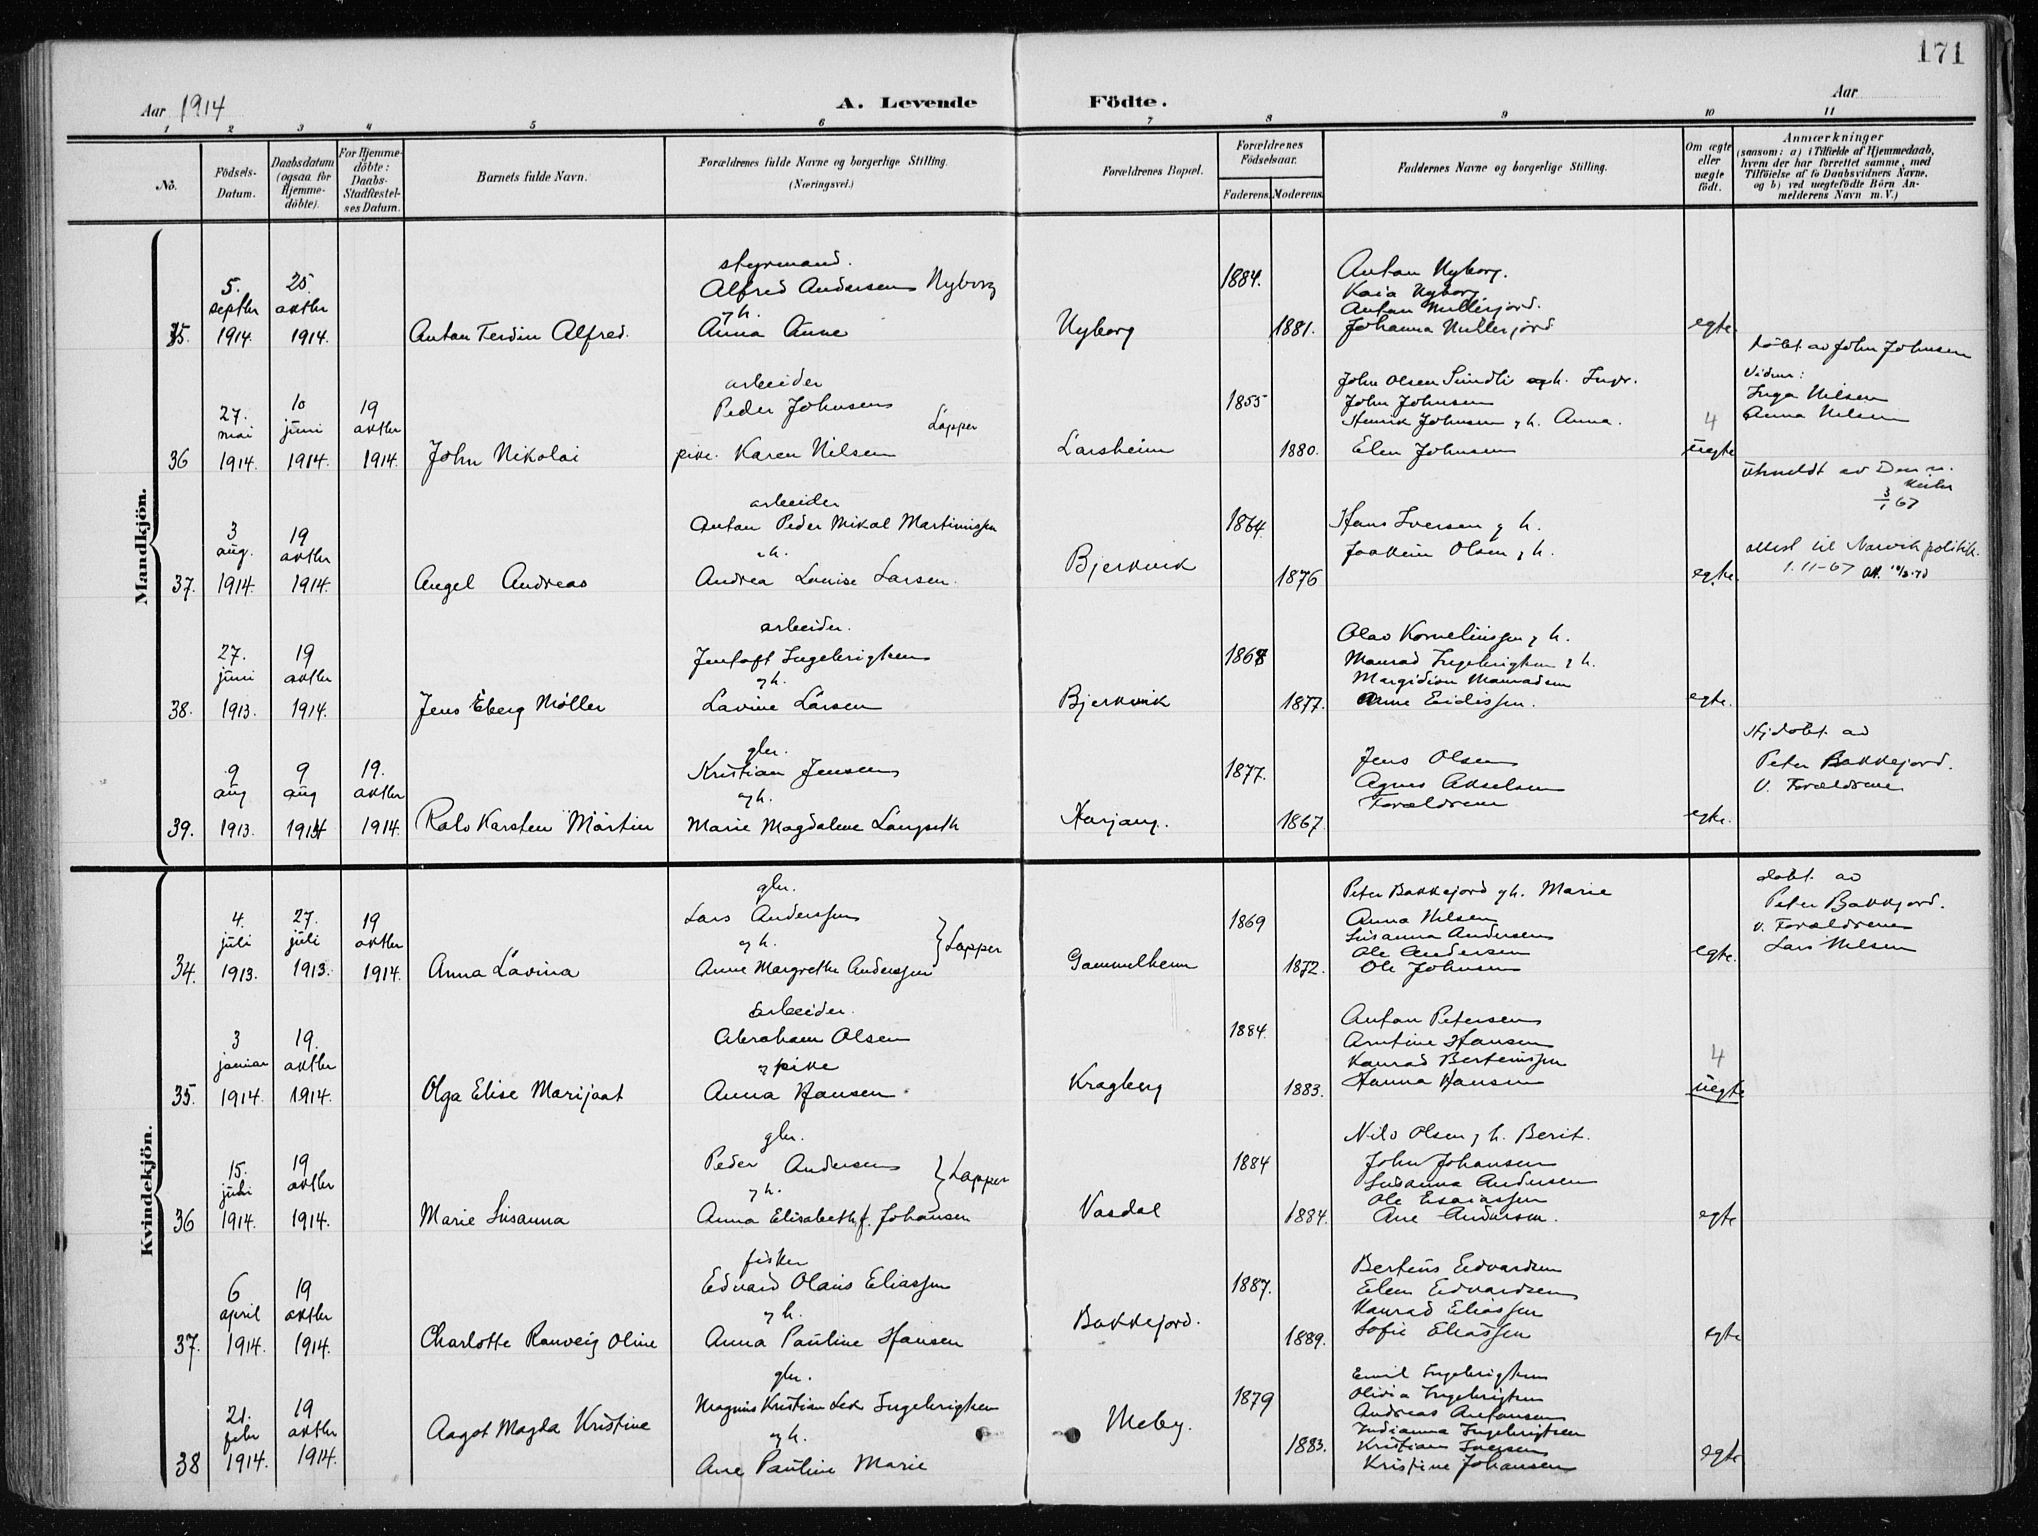 171
Aar 1914
A. Levende Födte.
Aar
1 2 3 4 5 6 7 8 9 10 11
No.
Födsels-
Datum.
Daabsdatum
(ogsaa for
Hjemme-
döbte).
For Hjemme-
döbte:
Daabs-
Stadfæstel-
ses Datum.
Barnets fulde Navn.
Forældrenes fulde Navne og borgerlige Stilling.
(Næringsvei.)
Forældrenes Bopæl.
Forældrenes
Födselsaar.
Faderens. Moderens.
Faddernes Navne og borgerlige Stilling.
Om ægte
eller
uægte
födt.
Anmærkninger
(saasom: a) i Tilfælde af Hjemmedaab,
hvem der har forrettet samme, med
Tilföielse af to Daabsvidners Navne,
og b) ved uægtefödte Börn An-
melderens Navn m. V.)
Mandkjön.
35.
5.
septbr
1914.
25.
oktbr
1914.
Anton Ferdin Alfred.
styrmand.
Alfred Andersen Nyborg
og h.
Anna Anne
Nyborg
1884.
1881.
Anton Nyborg.
Kaia Nyborg
Anton
Johanna
egte
36
27.
mai
1914.
10
juni
1914.
19
oktbr
1914.
John Nikolai
arbeider
Peder Johnsen
Lapper
pike. Karen Nilsen
Larsheim
1855
1880.
John Olsen
John Johnsen
Henrik Johnsen og h. Anna.
Elen Johnsen
4
uegte
døbt av John Johnsen
Vidner:
Inga Nilsen
Anna Nilsen
utmeldt av Den n.
kirke
3/1 67
37.
3
aug.
1914.
19
oktbr
1914.
Angel Andreas
arbeider
Anton Peder Mikal Martinussen
og h.
Andrea Lovise Larsen.
Bjerkvik
1864.
1876
Hans Iversen og h.
Joakim Olsen og h.
egte.
attest til Narvik politik.
1.11-67
38.
27.
juni
1913.
19
oktbr
1914.
Jens Eberg Møller
arbeider.
Jentoft Ingebrigtsen
og h.
Lavine Larsen
Bjerkvik
1868
1877.
Olav Korneliussen og h.
Monrad Ingebrigtsen og h.
Margidion Monradsen
Anne
egte.
39.
9
aug
1913.
9
aug
1914
19.
oktbr
1914.
Rolv Karsten Martin
gbr.
Kristian Jensen
og h.
Marie Magdalene Langseth
Harjang.
1877.
1867.
Jens Olsen
Agnes Akselsen
Forældrene
egte.
Hj døbt av
Peter Bakkejord.
V. Forældrene
Kvindekjön.
34.
4.
juli
1913.
27.
juli
1913.
19
oktbr
1914.
Anna Lavina
gbr.
Lars Anderssen
og h.
Anne Margrethe Anderssen
Lapper
Gammelheim
1869
1872.
Peter Bakkejord og h. Marie
Anna Nilsen
Susanna Andersen
Ole Andersen
Ole Johnsen
egte.
døbt av
Peter Bakkejord.
v. Forældrene
Lars Nilsen
35.
3
januar
1914.
19.
oktbr
1914.
Olga Elise Marijaat
arbeider.
Abraham Olsen
og pike
Anna Hansen
Kragberg
1884.
1883.
Anton Petersen
Arntine Hansen
Konrad Berteussen
Hanna Hansen
4
uegte
36
15.
juli
1914.
19
oktbr
1914.
Marie Susanna
gbr.
Peder Andersen
og h.
Anna Elisabeth f. Johansen
Lapper
Vasdal
1884
1884.
Nils Olsen og h. Berit.
John Johansen
Susanna Andersen
Ole Esaiassen
Ane Andersen.
egte
37.
6
april
1914.
19
oktbr
1914.
Charlotte Ranveig Oline
fisker
Edvard Olaus Eliassen
og h.
Anna Pauline Hansen
Bakkejord.
1887.
1889.
Berteus Edvardsen
Elen Edvardsen
Konrad Eliassen
Sofie Eliassen
egte
38
21.
febr
1914.
19
oktbr
1914.
Aagot Magda Kristine
gbr.
Magnus Kristian Ingebrigtsen
og h.
Ane Pauline Marie
Meby.
1879
1883.
Emil Ingebrigtsen
Olivia Ingebrigtsen
Andreas Antonsen
Indianna Ingebrigtsen
Kristian Iversen
Kristine Johansen
egte